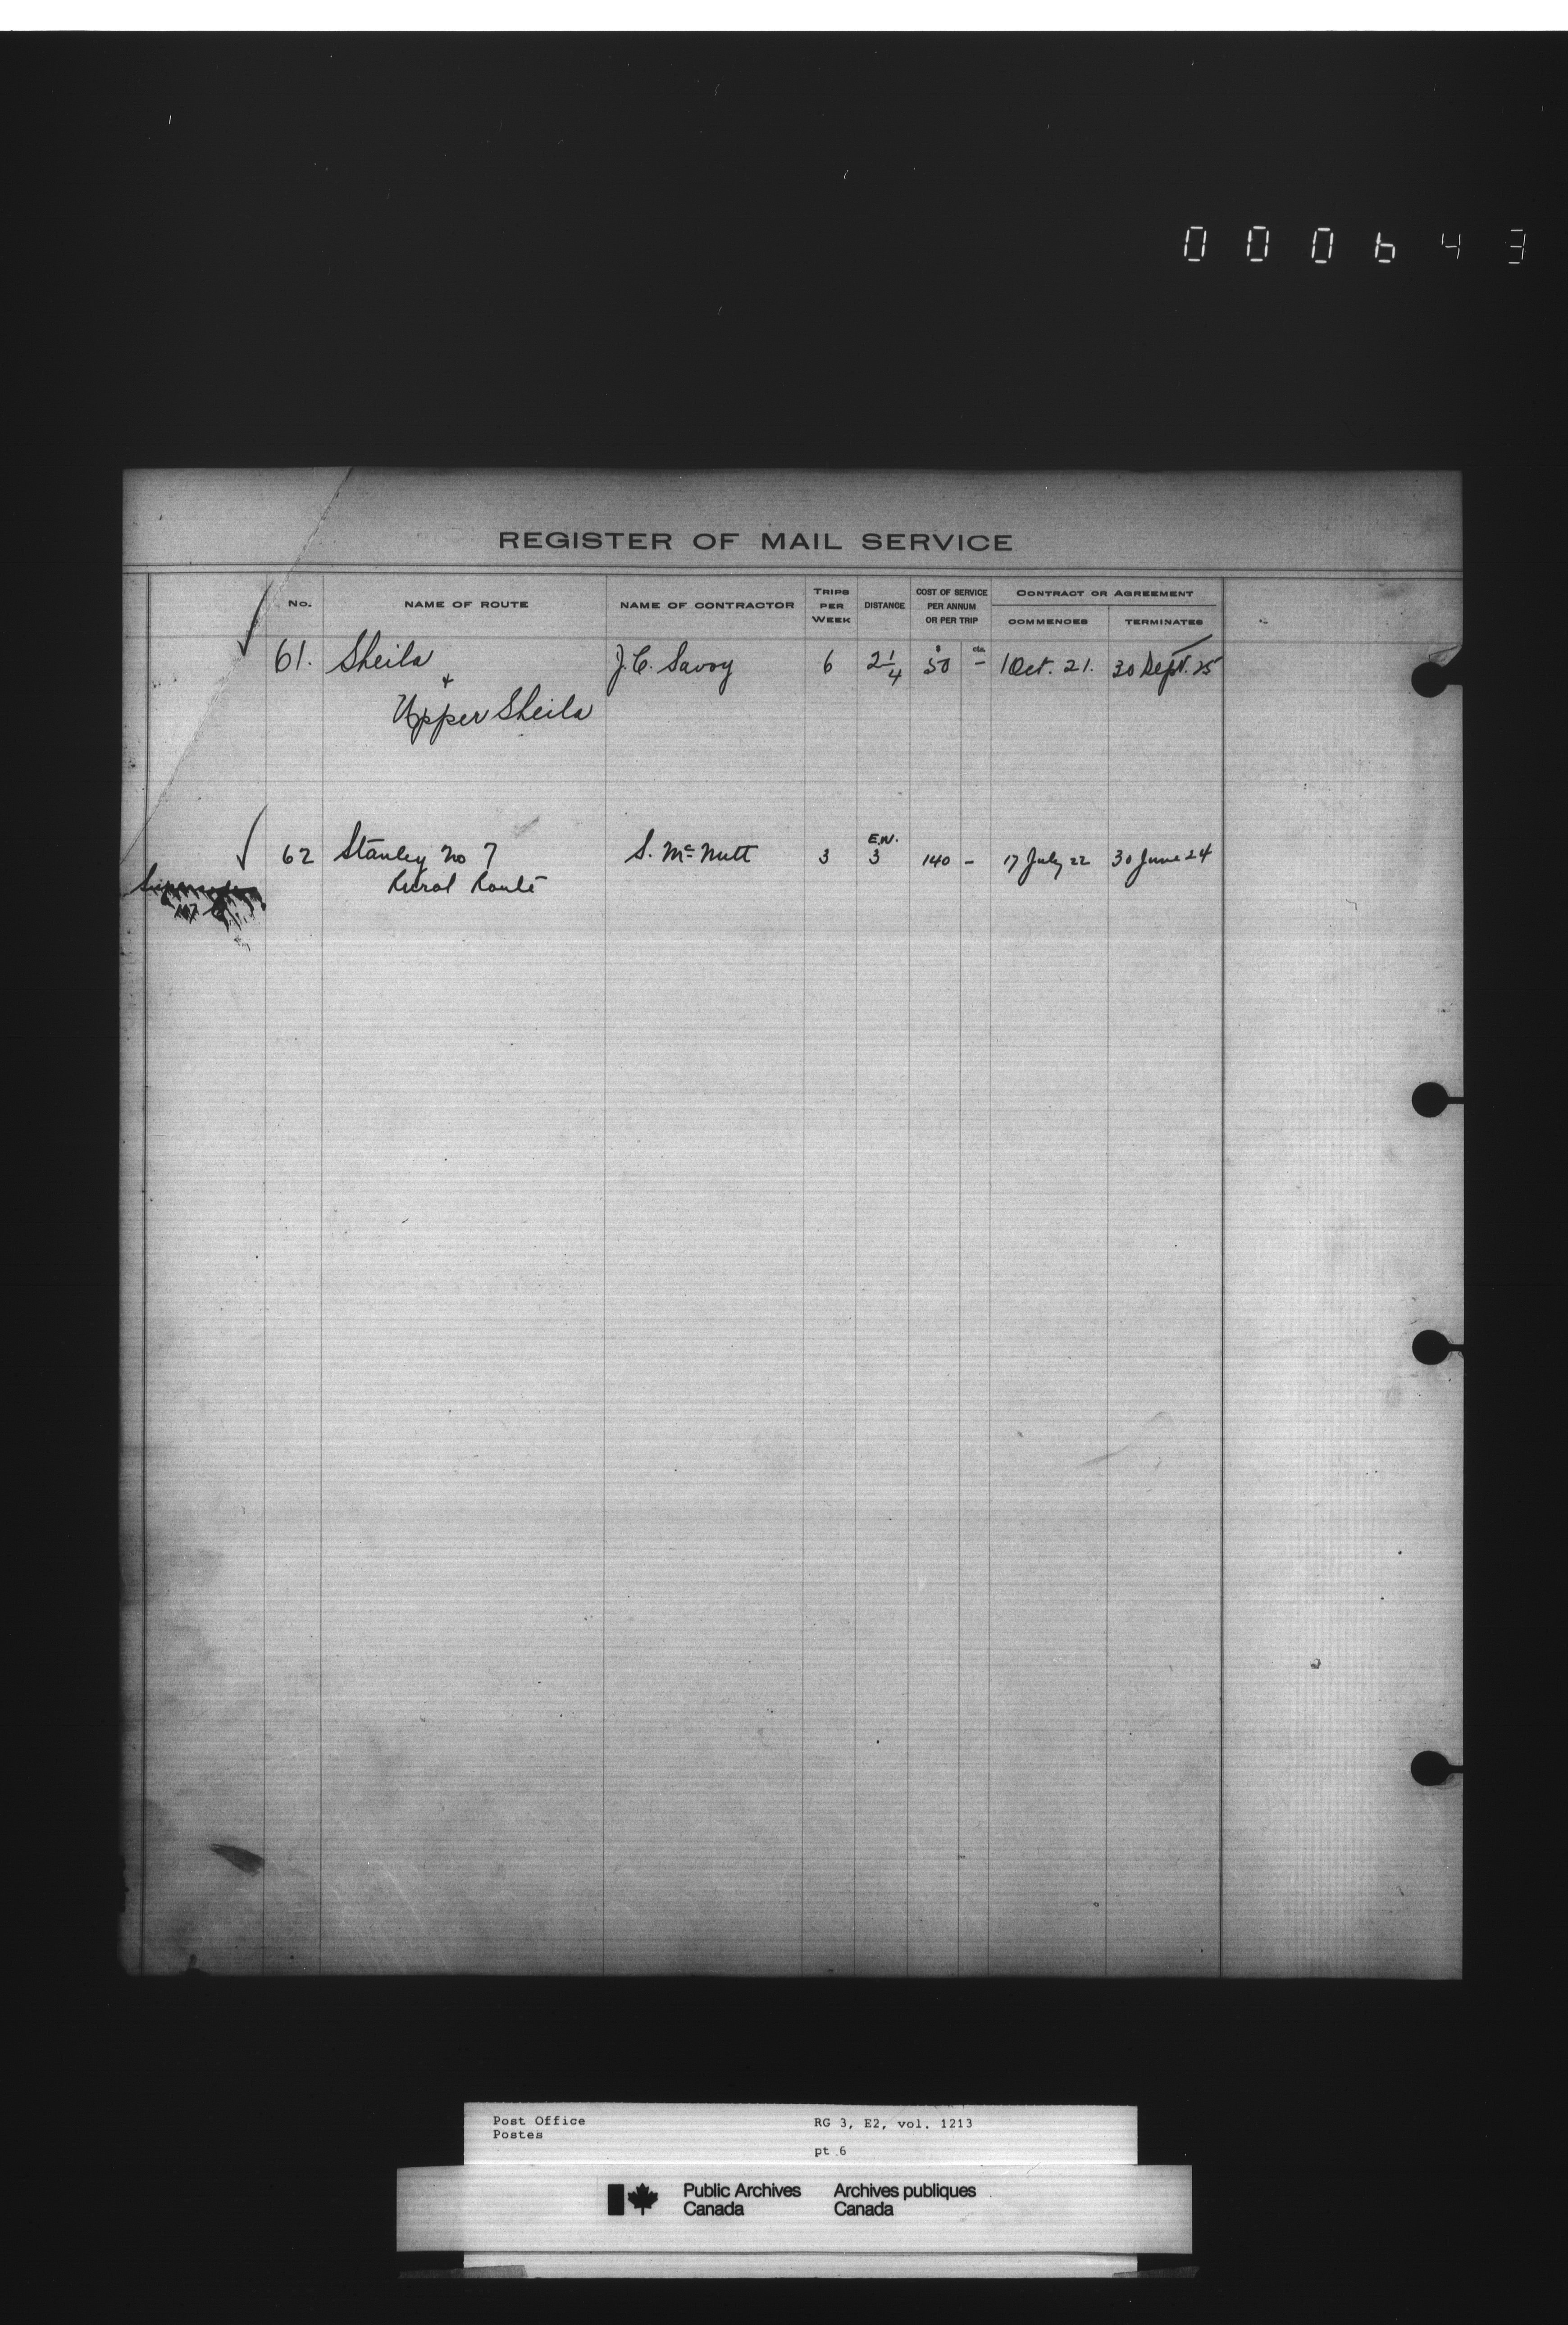 000643
REGISTER OF MAIL SERVICE
No. NAME OF ROUTE NAME OF CONTRACTOR TRIPS PER WEEK DISTANCE COST OF SERVICE PER ANNUM OR PER TRIP CONTRACT OR AGREEMENT COMMENCES TERMINATES
$ cts.
61. Sheila J.C. Savoy 6 2 1/4 50 – 1 Oct. 21. 30 Sept. 25
+
Upper Sheila
E.W.
62 Stanley No 7 S. McNutt 3 3 140 – 17 July 22 30 June 24
Rural Route
Post Office RG 3, E2, vol. 1213
Postes
pt 6
Public Archives Archives publiques
Canada Canada